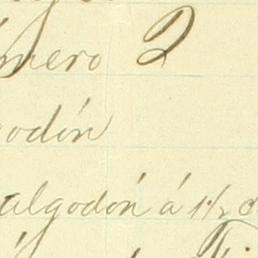 úmero 2
godón
algodón á 1½ c